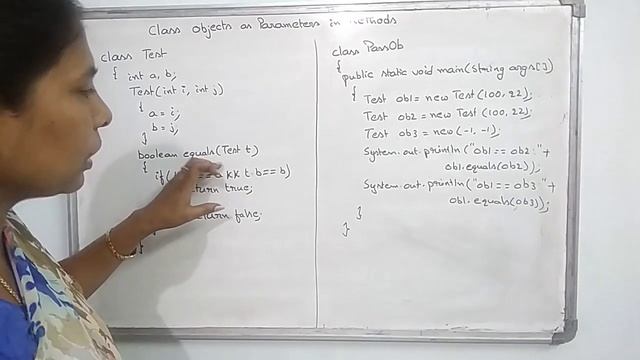 Class Objects as Parameters in Methods
class Test
{ int a, b;
Test(int i, int j)
{
a = i;
b = j;
}
boolean equals(Test t)
{
if( == a && t.b==b)
return true;
return false;
}
class PassOb
{
public static void main(String args[])
{ Test ob1 = new Test (100, 22);
Test ob2 = new Test (100, 22);
Test ob3 = new (-1, -1);
System.out.println("ob1 == ob2 " +
ob1.equals(ob2));
System.out.println("ob1 == ob3 " +
ob1.equals(ob3));
}
}